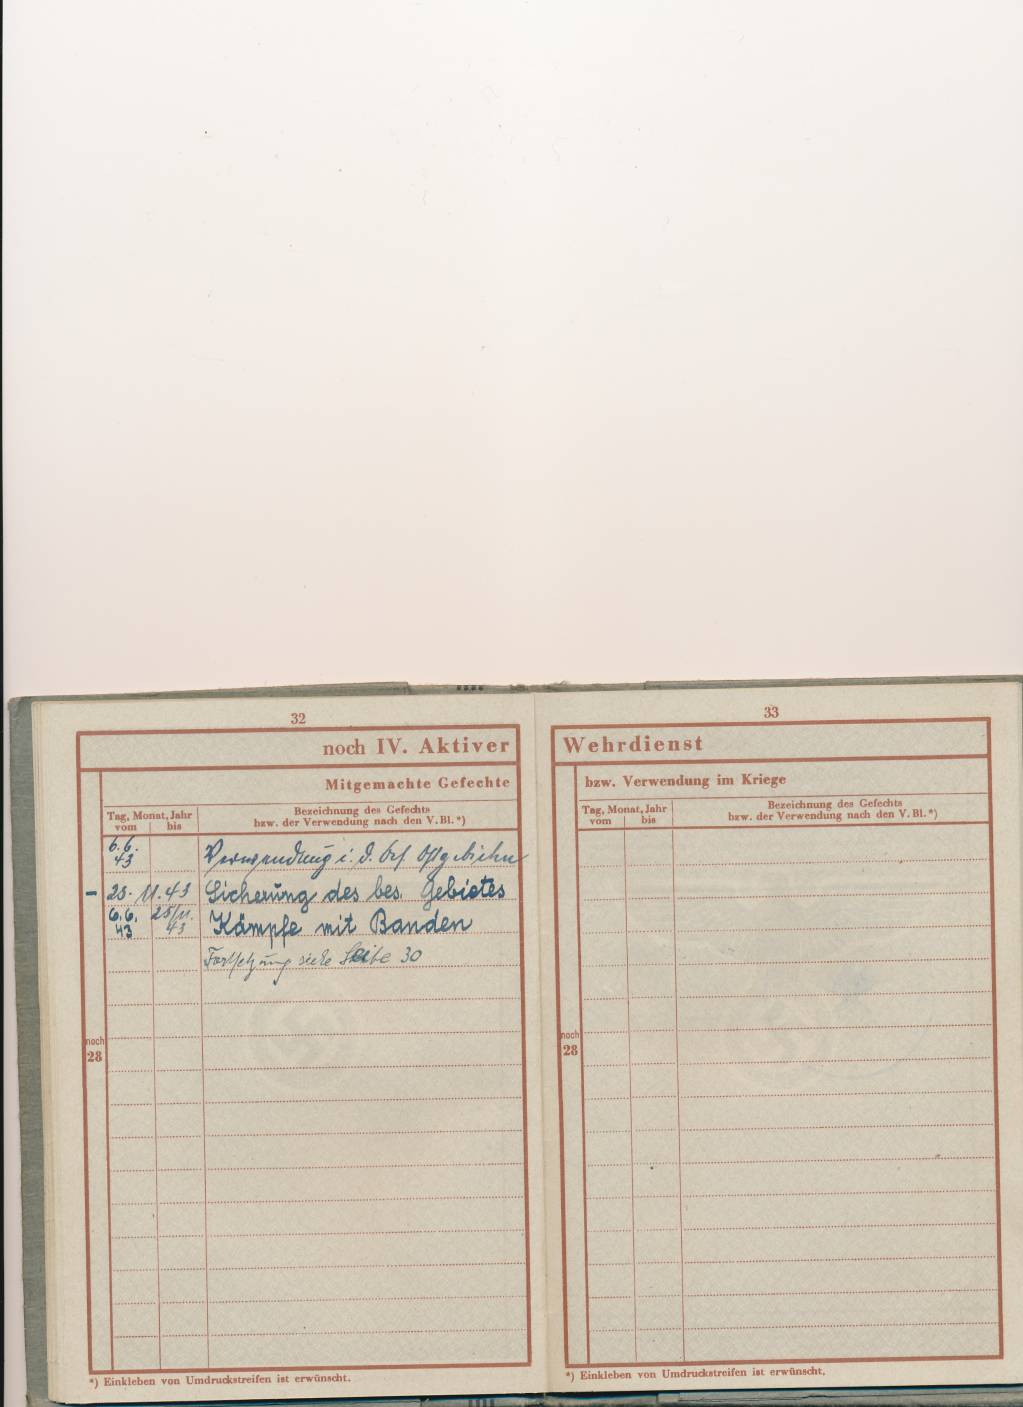 32
noch IV. Aktiver
Mitgemachte Gefechte
Tag, Monat, Jahr
vom bis
Bezeichnung des Gefechts
bzw. der Verwendung nach den V. Bl. *)
6.6.
43
Verwendung i. d. bes. Ostgebieten
- 25. 11. 43 Sicherung des bes. Gebietes
6.6. 25/11.
43 43 Kämpfe mit Banden
Fortsetzung siehe Seite 30
noch
28
*) Einkleben von Umdruckstreifen ist erwünscht.
33
Wehrdienst
bzw. Verwendung im Kriege
Tag, Monat, Jahr
vom bis
Bezeichnung des Gefechts
bzw. der Verwendung nach den V. Bl. *)
noch
28
*) Einkleben von Umdruckstreifen ist erwünscht.